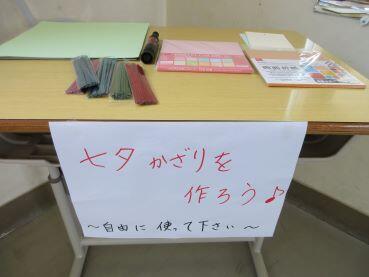 七夕かざりを
作ろう♪
～自由に使って下さい～